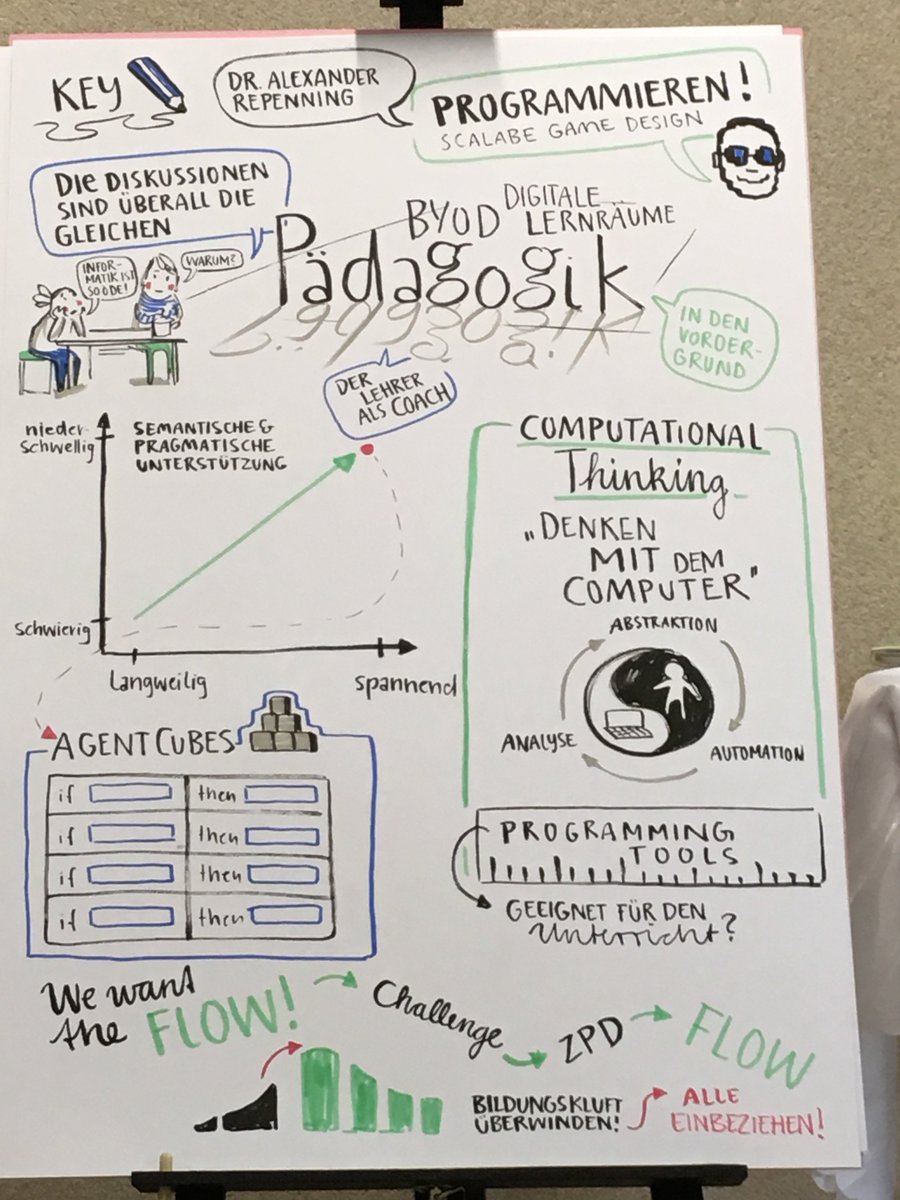 KEY
DR. ALEXANDER
REPENNING
PROGRAMMIEREN!
SCALABE GAME DESIGN
DIE DISKUSSIONEN
SIND ÜBERALL DIE
GLEICHEN
INFOR-
MATIK IST
SO ÖDE!
WARUM?
BYOD
DIGITALE
LERNRÄUME
Pädagogik
IN DEN
VORDER-
GRUND
DER
LEHRER
ALS COACH
nieder-
schwellig
SEMANTISCHE &
PRAGMATISCHE
UNTERSTÜTZUNG
schwierig
Langweilig
spannend
COMPUTATIONAL
Thinking
„DENKEN
MIT DEM
COMPUTER"
ABSTRAKTION
ANALYSE
AUTOMATION
AGENTCUBES
if then
if then
if then
if then
PROGRAMMING
TOOLS
GEEIGNET FÜR DEN
Unterricht?
We want
the FLOW!
Challenge
ZPD
FLOW
BILDUNGSKLUFT
ÜBERWINDEN!
ALLE
EINBEZIEHEN!